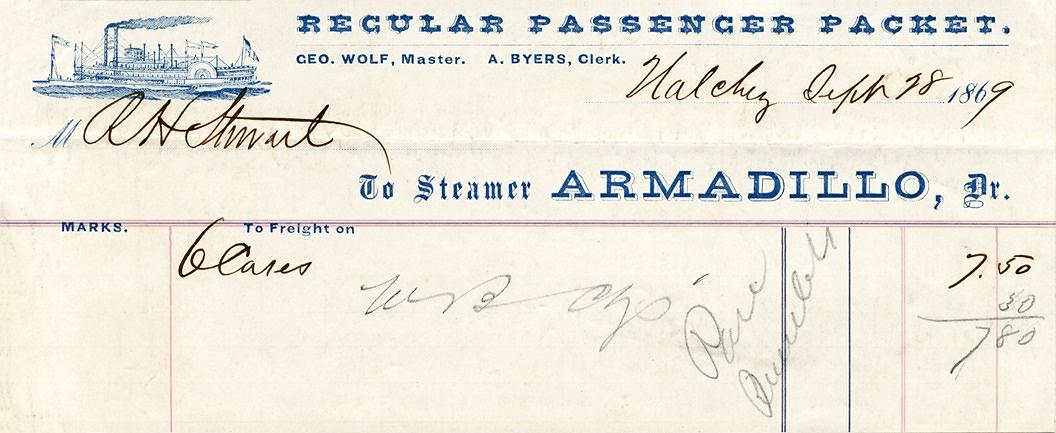 REGULAR PASSENGER PACKET.
GEO. WOLF, Master. A. BYERS, Clerk.
Natchez Sept 28 1869
M R H Stewart
To Steamer ARMADILLO, Dr.
MARKS. To Freight on
6 Cases 7.50
W B Chgs 30
7 80